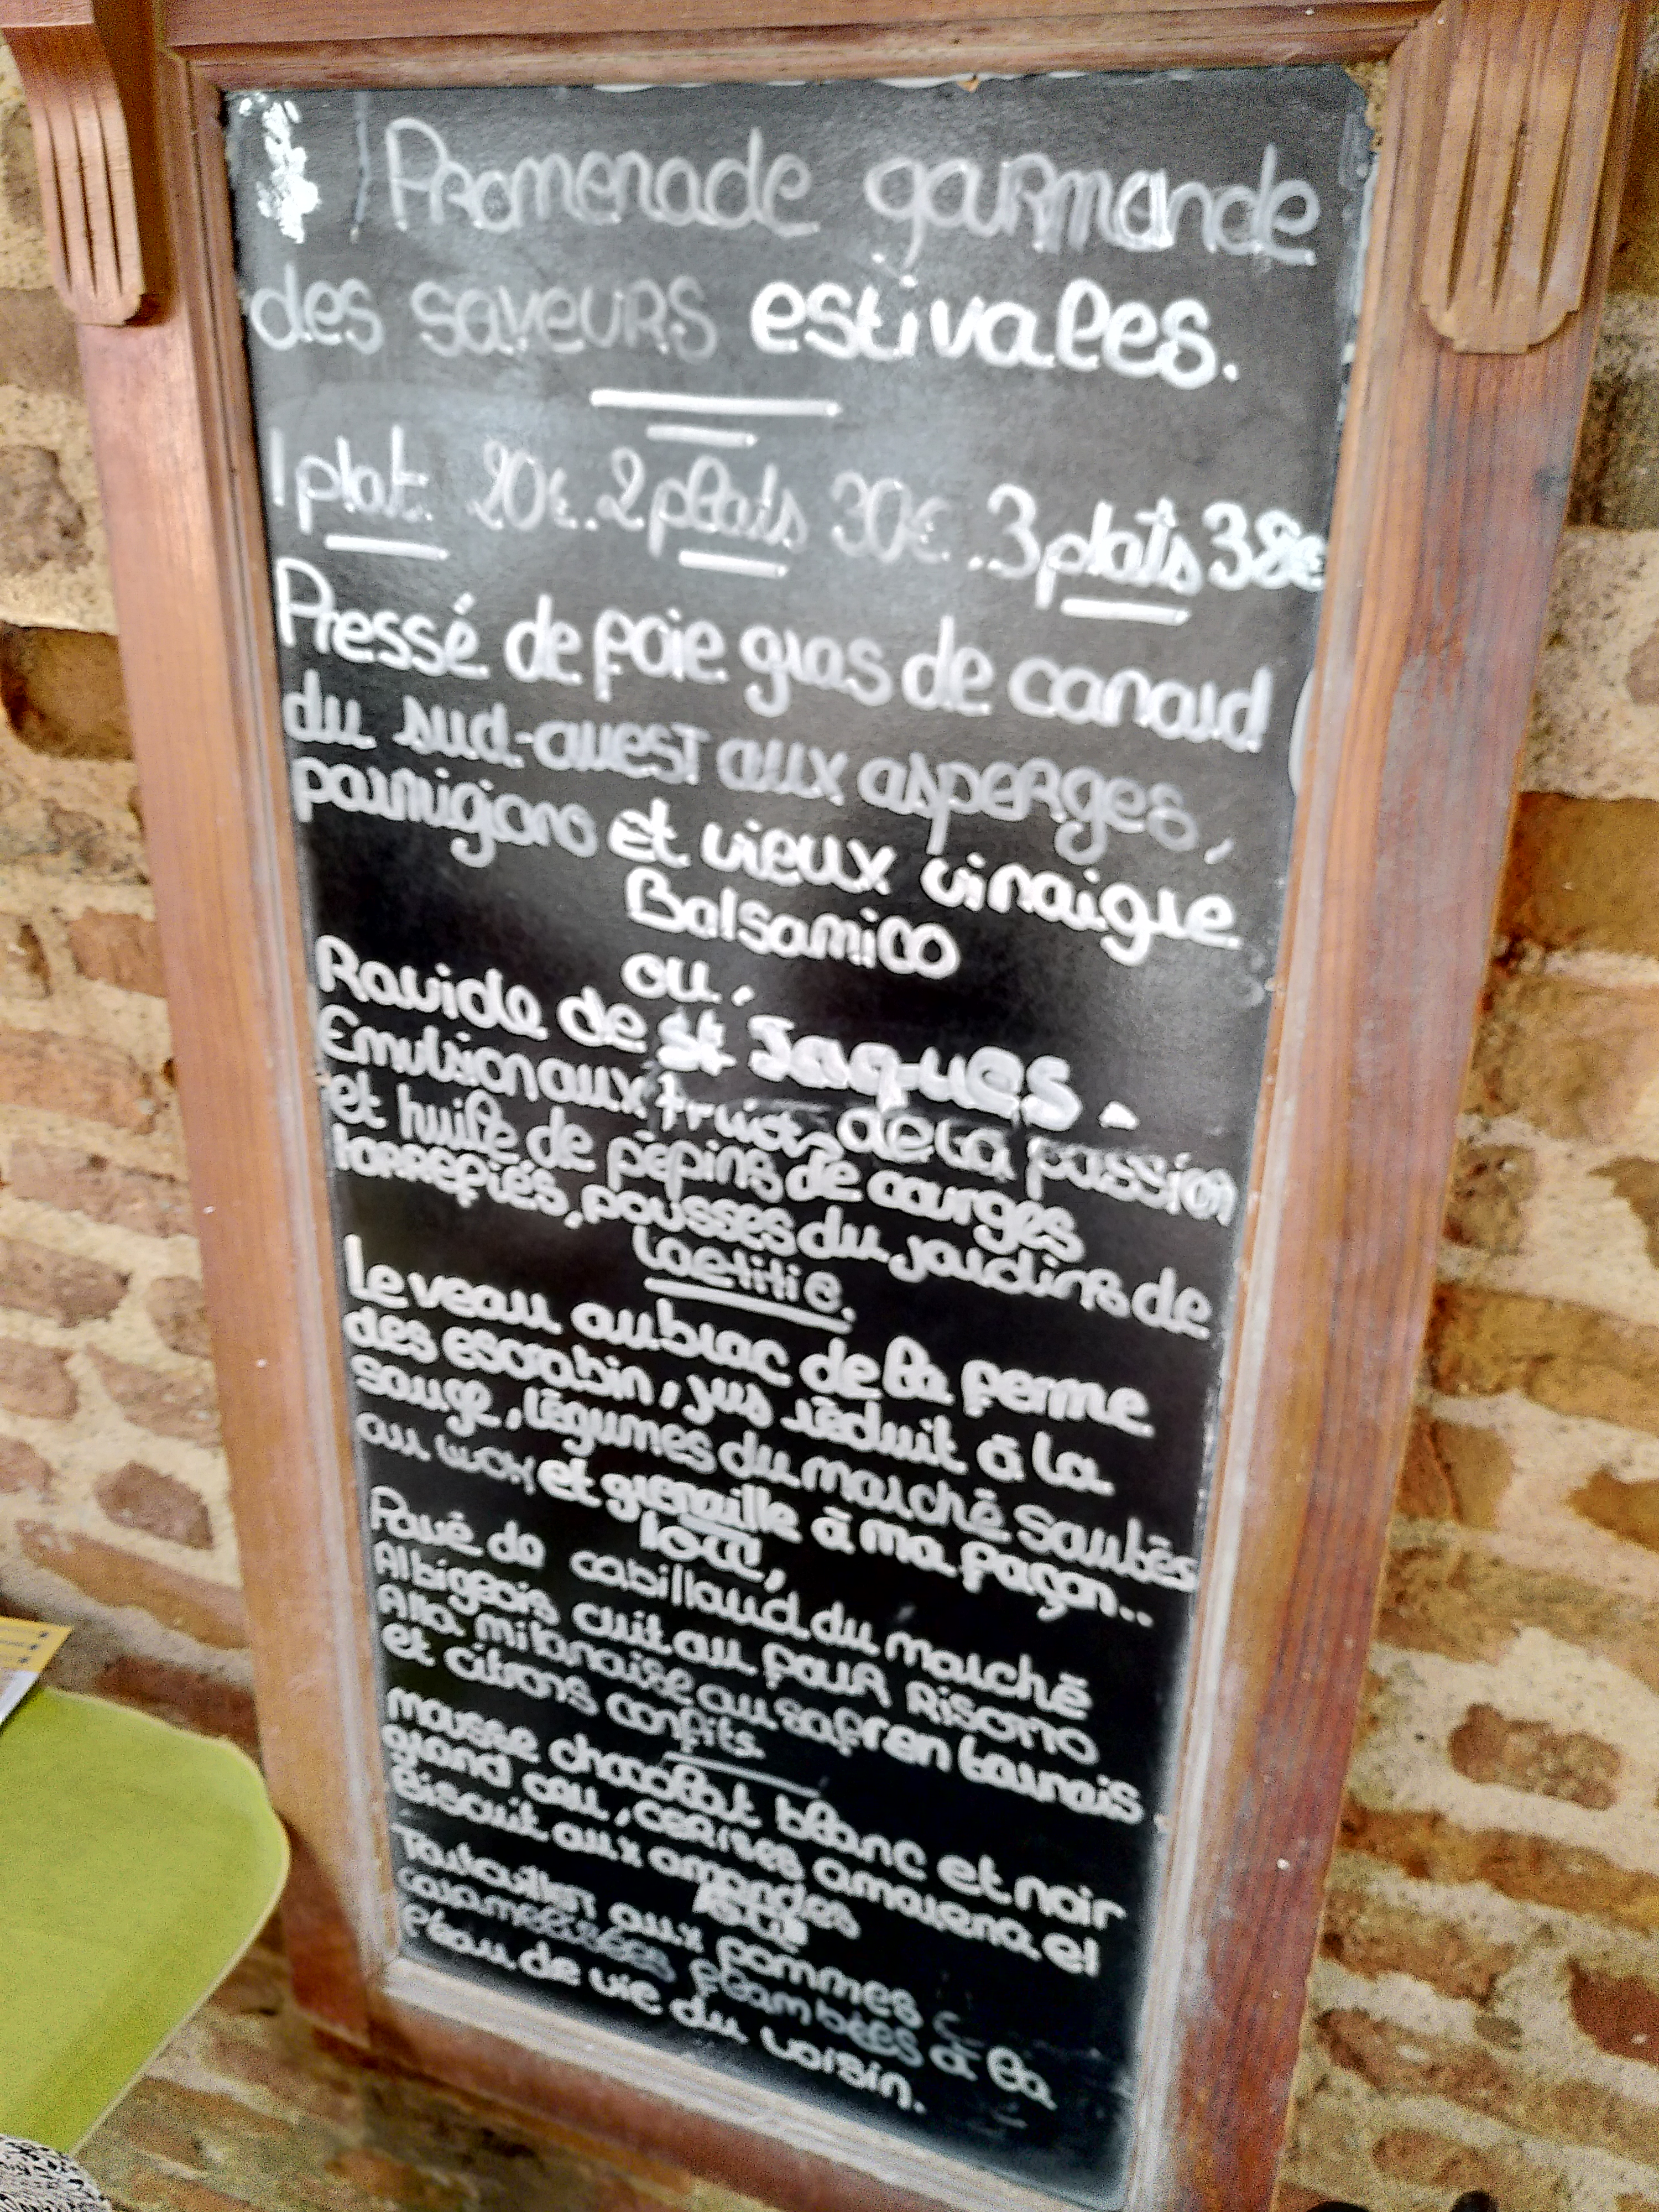 Promenade gourmande
des saveurs estivales.
1 plat 20€..2 plats 30€..3 plats 38€
Pressé de foie gras de canard
du sud-ouest aux asperges,
parmigiano et vieux vinaigre
Balsamico
ou,
Raviole de st Jaques.
Emulsion aux fruits de la passion
et huile de pépins de courges
torrefiés, pousses du jardins de
Laetitia.
Le veau aubrac de la ferme
des escrabin, jus réduit à la
sauge, légumes du marché sautés
au wok et grenaille à ma façon..
ou,
Pavé de cabillaud du marché
Albigeois cuit au four Risotto
Alla milanaise au safran tarnais.
et citrons confits
mousse chocolat blanc et noir
grand cru, cerises amarena et
Biscuit aux amandes
aux pommes
caramélisées flambées à la
l'eau de vie du voisin.